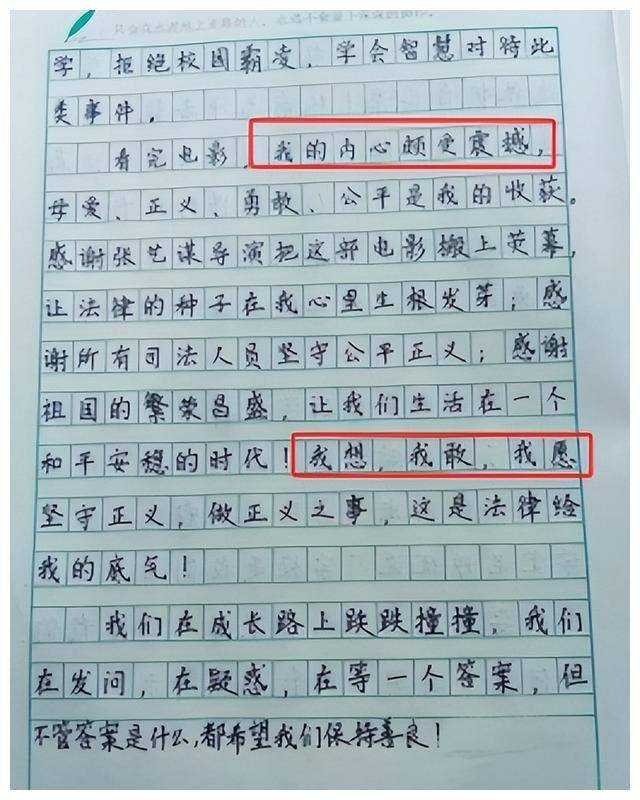 学，拒绝校园霸凌，学会智慧对待此
类事件。
看完电影，我的内心颇受震撼，
母爱、正义、勇敢、公平是我的收获。
感谢张艺谋导演把这部电影搬上荧幕，
让法律的种子在我心里生根发芽；感
谢所有司法人员坚守公平正义；感谢
祖国的繁荣昌盛，让我们生活在一个
和平安稳的时代！我想，我敢，我愿
坚守正义，做正义之事，这是法律给
我的底气！
我们在成长路上跌跌撞撞，我们
在发问，在疑惑，在等一个答案，但
不管答案是什么，都希望我们保持善良！